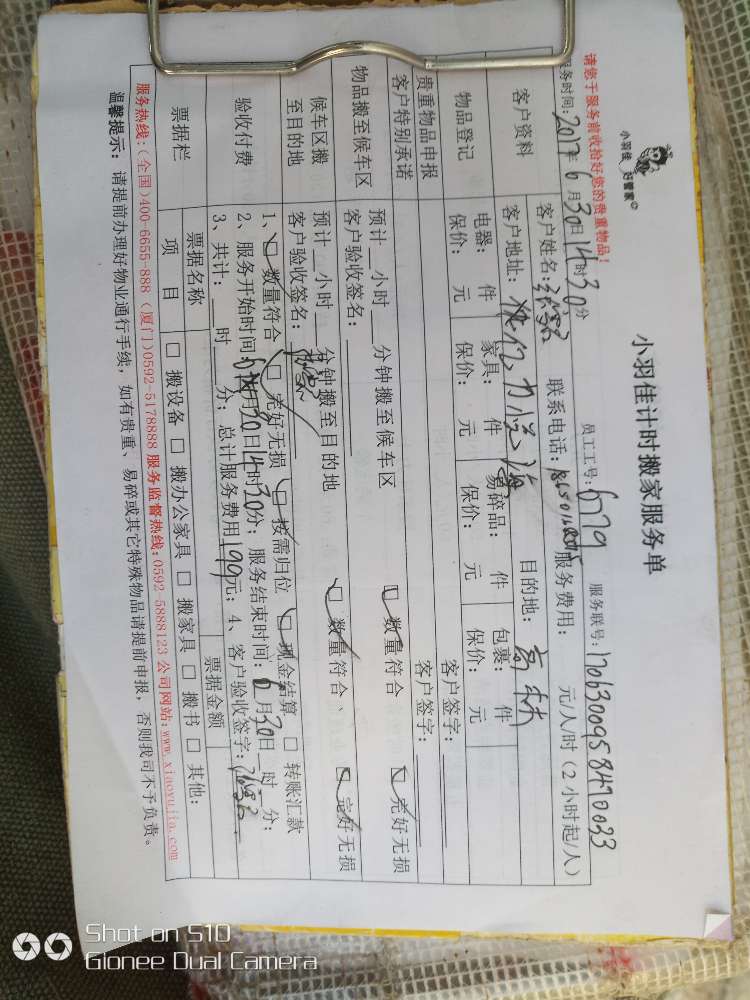 小羽佳 好管家
小羽佳计时搬家服务单
请您于服务前收拾好您的贵重物品！
员工工号：6779 服务联号：
服务时间：2017年6月30日14时30分
客户资料
客户姓名： 联系电话： 服务费用： 元/人/时（2小时起/人）
客户地址： 目的地：
物品登记
电器： 件 家具： 件 易碎品： 件 包裹： 件
保价： 元 保价： 元 保价： 元 保价： 元
贵重物品申报 客户签字：
客户特别承诺 客户签字：
物品搬至候车区
预计 小时 分钟搬至候车区 数量符合 完好无损
客户验收签名：
候车区搬至目的地
预计 小时 分钟搬至目的地 数量符合、 完好无损
客户验收签名：
验收付费
1、 数量符合 完好无损 按需归位 现金结算 转账汇款
2、服务开始时间：6月30日14时30分；服务结束时间：6月30日 时 分；
3、共计： 时 分；总计服务费用199元；4、客户验收签字：
票据栏
票据名称 票据金额
项目 搬设备 搬办公家具 搬家具 搬书 其他：
服务热线：（全国）400-6655-888（厦门）0592-5178888 服务监督热线：0592-5888123 公司网站：www.xiaoyujia.com
温馨提示：请提前办理好物业通行手续，如有贵重、易碎或其它特殊物品请提前申报，否则我司不予负责。
Shot on S10
Gionee Dual Camera